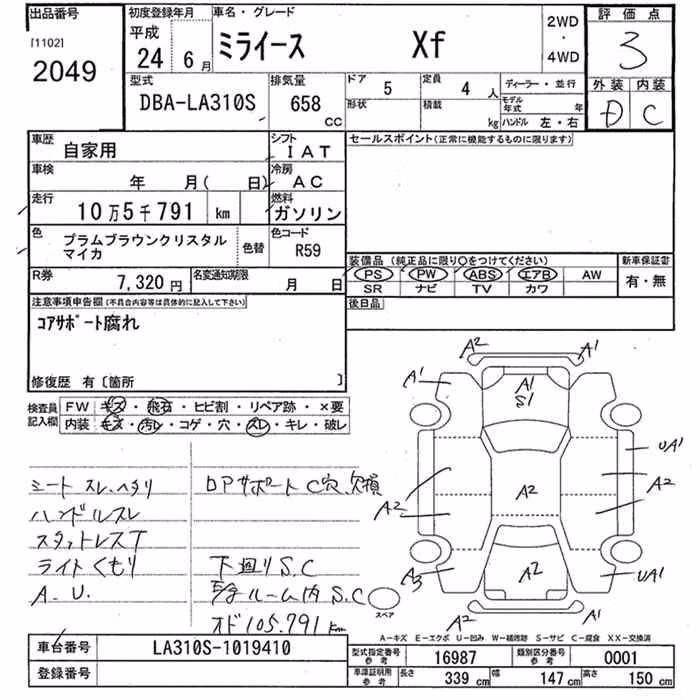 出品番号
[1102]
2049
初度登録年月
平成
24 6月
車名・グレード
ミライース Xf
2WD
・
4WD
評価点
3
外装 内装
D C
型式
DBA-LA310S
排気量
658
CC
ドア 5
定員 4 人
形状
積載 kg
ディーラー・並行
モデル年式 年
ハンドル 左・右
車歴
自家用
シフト
IAT
車検
年 月( 日)
冷房
AC
走行
10万5千791 km
燃料
ガソリン
色
プラムブラウンクリスタル
マイカ
色替
色コード
R59
R券
7,320円
名変通知期限
月 日
セールスポイント(正常に機能するものに限ります)
装備品 (純正品に限り○をつけてください)
PS PW ABS エアB AW
SR ナビ TV カワ
新車保証書
有・無
後日品
注意事項申告欄(不具合内容等は具体的に記入して下さい)
コアサポート腐れ
修復歴 有〔箇所 〕
検査員
記入欄
FW キズ・飛石・ヒビ割・リペア跡・×要
内装 キズ・汚レ・コゲ・穴・スレ・キレ・破レ
シート スレ、ヘタリ
ハンドルスレ
スタットレスT
ライトくもり
A.U.
コアサポート C穴、欠損
下廻りS.C
ルーム内 S.C
オド105.791km
A2 A1
A1 A1
S1
UA1
A2 A2 A2
A3 A2 UA1
A2 A1
スペア
A-キズ E-エクボ U-凹み W-補修跡 S-サビ C-腐食 XX-交換済
車台番号
LA310S-1019410
登録番号
型式指定番号
参考
16987
類別区分番号
参考
0001
車庫証明用
参考
長さ 339 cm
幅 147 cm
高さ 150 cm